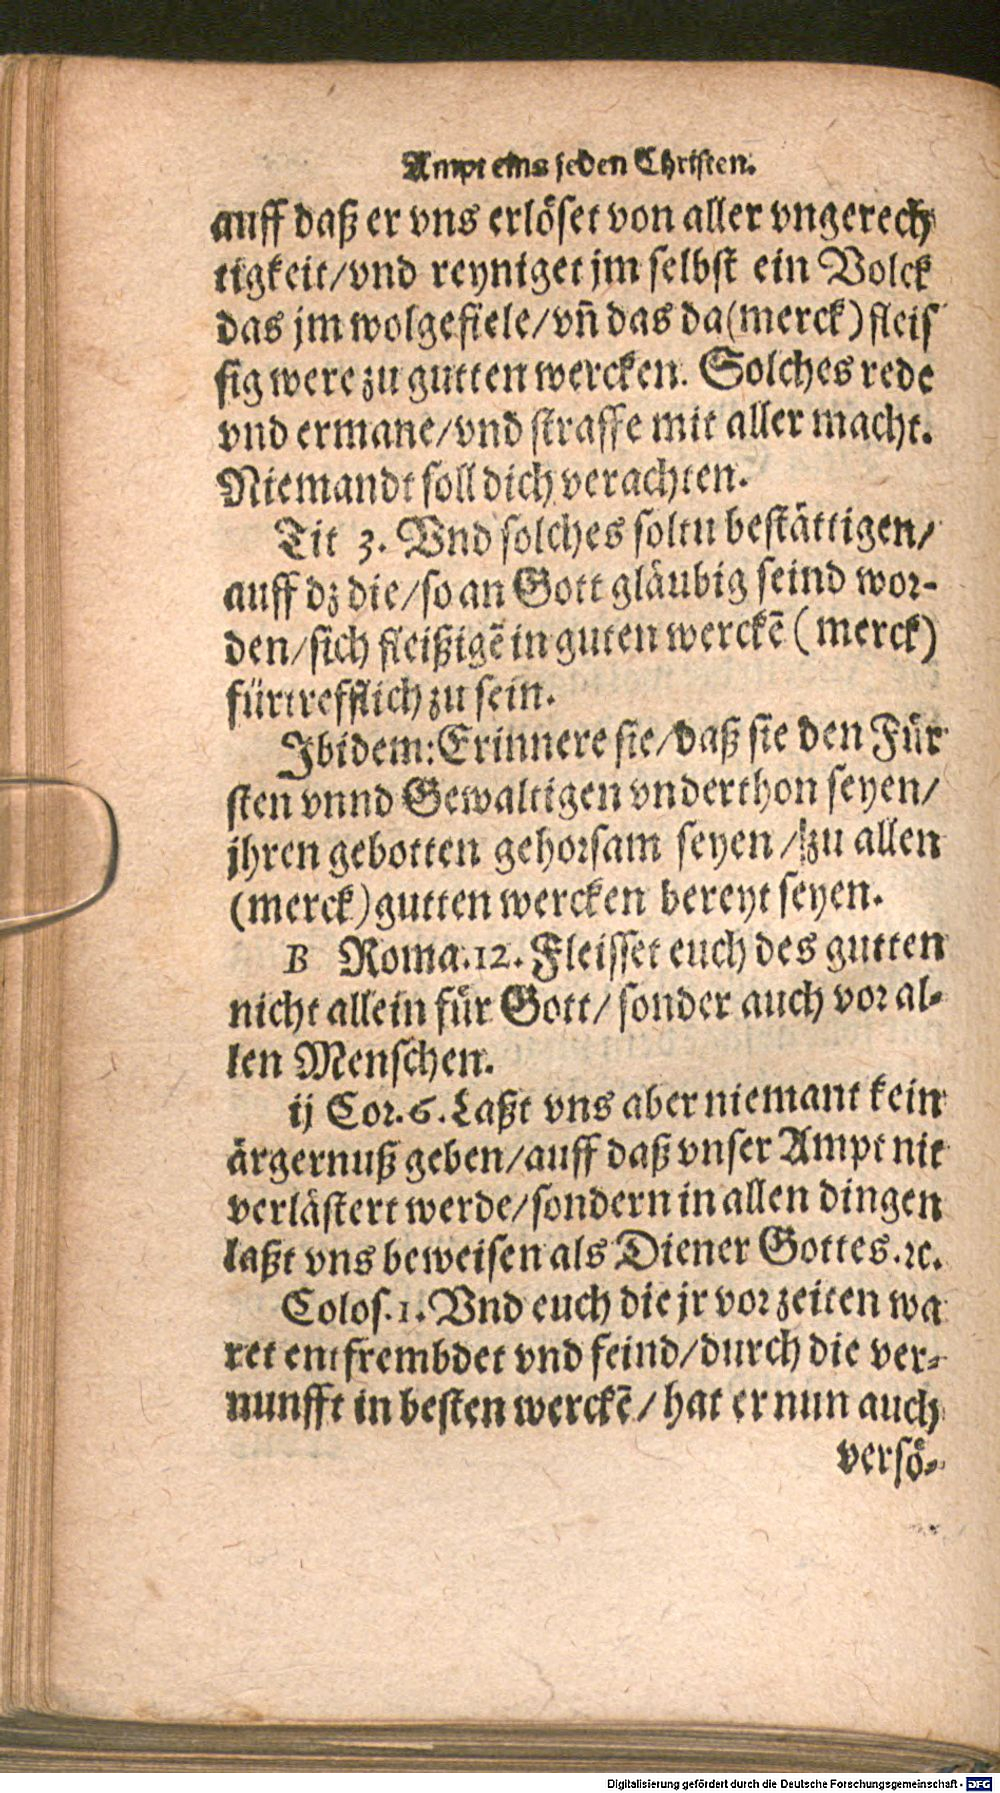 Ampt eins jeden Christen.
auff daß er vns erlöset von aller vngerech
tigkeit/vnd reyniget jm selbst ein Volck
das jm wolgefiele/vñ das da(merck)fleis
sig were zu gutten wercken. Solches rede
vnd ermane/vnd straffe mit aller macht.
Niemandt soll dich verachten.
Tit 3. Vnd solches soltu bestättigen/
auff dz die/so an Gott gläubig seind wor-
den/sich fleißigẽ in guten werckẽ (merck)
fürtrefflich zu sein.
Ibidem: Erinnere sie/daß sie den Für
sten vnnd Gewaltigen vnderthon seyen/
jhren gebotten gehorsam seyen/zu allen
(merck)gutten wercken bereyt seyen.
B Roma.12. Fleisset euch des gutten
nicht allein für Gott/sonder auch vor al-
len Menschen.
ij Cor.6. Laßt vns aber niemant kein
ärgernuß geben/auff daß vnser Ampt nit
verlästert werde/sondern in allen dingen
laßt vns beweisen als Diener Gottes.ꝛc.
Colos.1. Vnd euch die jr vor zeiten wa
ret entfrembdet vnd feind/durch die ver-
nunfft in besten werckẽ/hat er nun auch
versö-
Digitalisierung gefördert durch die Deutsche Forschungsgemeinschaft - DFG